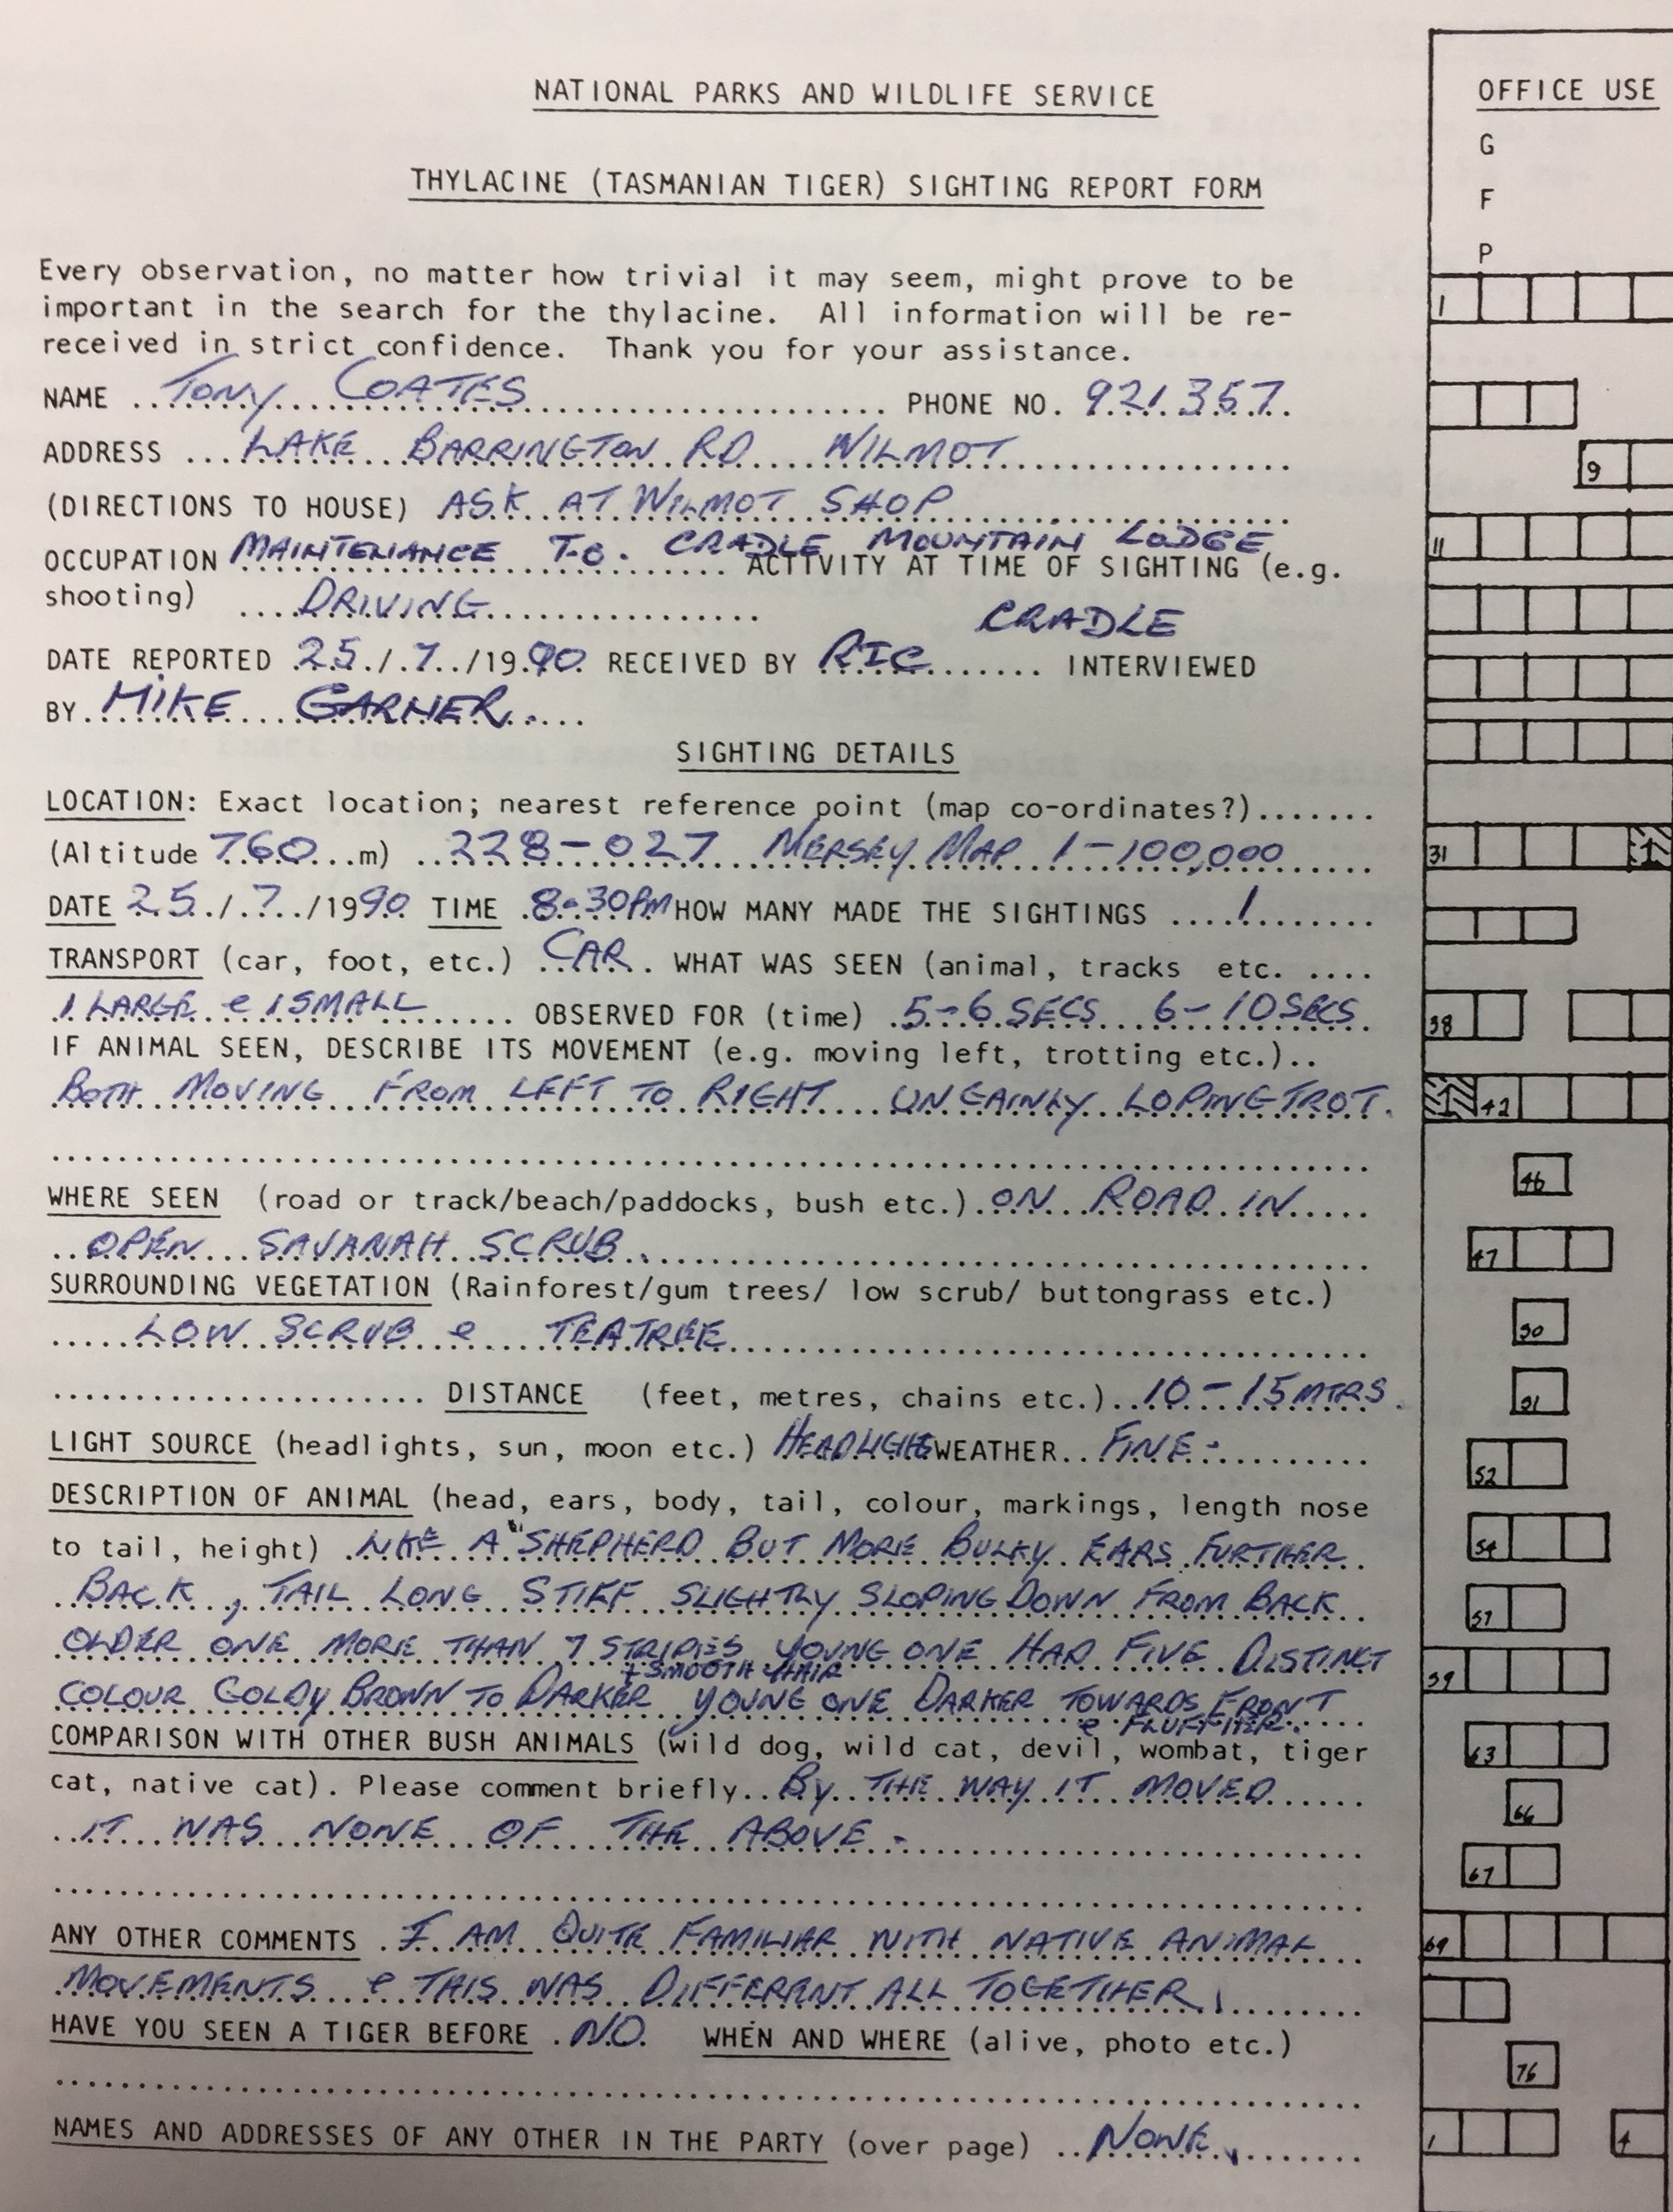 NATIONAL PARKS AND WILDLIFE SERVICE
OFFICE USE
G
F
P
THYLACINE (TASMANIAN TIGER) SIGHTING REPORT FORM
Every observation, no matter how trivial it may seem, might prove to be
important in the search for the thylacine. All information will be re-
received in strict confidence. Thank you for your assistance.
1
NAME TONY COATES PHONE NO. 921357
ADDRESS LAKE BARRINGTON RD WILMOT
9
(DIRECTIONS TO HOUSE) ASK AT WILMOT SHOP
OCCUPATION MAINTENANCE TO. CRADLE MOUNTAIN LODGE ACTIVITY AT TIME OF SIGHTING (e.g.
11
shooting) DRIVING
CRADLE
DATE REPORTED 25/7/1990 RECEIVED BY RIC INTERVIEWED
BY MIKE GARNER
SIGHTING DETAILS
LOCATION: Exact location; nearest reference point (map co-ordinates?).......
(Altitude 760 m) 228-027 MERSEY MAP 1-100,000
31
DATE 25/7/1990 TIME 8-30PM HOW MANY MADE THE SIGHTINGS 1
TRANSPORT (car, foot, etc.) CAR WHAT WAS SEEN (animal, tracks etc. ....
1 LARGE e 1 SMALL OBSERVED FOR (time) 5-6 SECS 6-10 SECS
38
IF ANIMAL SEEN, DESCRIBE ITS MOVEMENT (e.g. moving left, trotting etc.)..
BOTH MOVING FROM LEFT TO RIGHT UNGAINLY LOPING TROT.
42
46
WHERE SEEN (road or track/beach/paddocks, bush etc.) ON ROAD IN
OPEN SAVANAH SCRUB.
47
SURROUNDING VEGETATION (Rainforest/gum trees/ low scrub/ buttongrass etc.)
LOW SCRUB e TEATREE
50
DISTANCE (feet, metres, chains etc.) 10-15 MTRS.
51
LIGHT SOURCE (headlights, sun, moon etc.) HEADLIGHTS WEATHER FINE-
52
DESCRIPTION OF ANIMAL (head, ears, body, tail, colour, markings, length nose
to tail, height) LIKE A SHEPHERD BUT MORE BULKY EARS FURTHER
54
BACK, TAIL LONG STIFF SLIGHTLY SLOPING DOWN FROM BACK
57
OLDER ONE MORE THAN 7 STRIPES YOUNG ONE HAD FIVE DISTINCT
+ SMOOTH HAIR
59
COLOUR GOLDY BROWN TO DARKER YOUNG ONE DARKER TOWARDS FRONT
e FLUFFIER.
COMPARISON WITH OTHER BUSH ANIMALS (wild dog, wild cat, devil, wombat, tiger
63
cat, native cat). Please comment briefly.. BY THE WAY IT MOVED
66
IT WAS NONE OF THE ABOVE-
67
ANY OTHER COMMENTS I AM QUITE FAMILIAR WITH NATIVE ANIMAL
69
MOVEMENTS e THIS WAS DIFFERENT ALL TOGETHER.
HAVE YOU SEEN A TIGER BEFORE NO. WHEN AND WHERE (alive, photo etc.)
76
NAMES AND ADDRESSES OF ANY OTHER IN THE PARTY (over page) NONE.
1
4